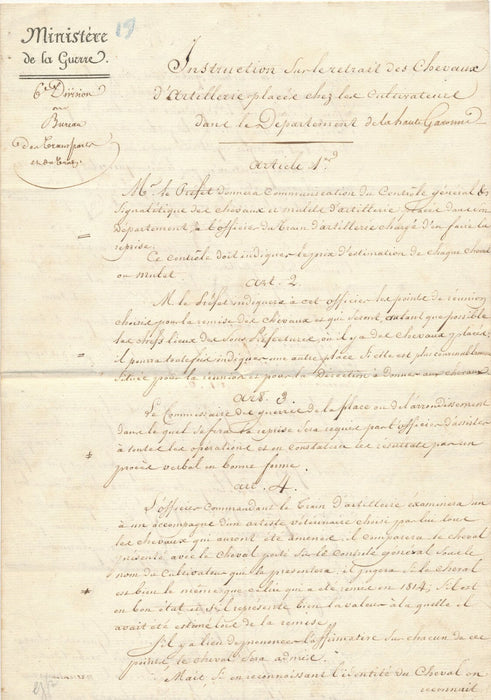 Ministère
de la Guerre.
19
6e Division
Bureau
des Transports
Instruction sur le retrait des Chevaux
d'Artillerie placés chez les Cultivateurs
dans le Département de la haute Garonne
Article 1er
Mr le Préfet donnera Communication du Contrôle général &
Signalétique des chevaux et mulets d'artillerie placés dans son
Département, à l'officier du Train d'artillerie chargé d'en faire la
reprise.
Ce contrôle doit indiquer le prix d'estimation de chaque cheval
ou mulet.
art. 2
M. le Préfet indiquera à cet officier les points de réunion
choisis pour la remise des chevaux et qui seront, autant que possible
les chefs lieux des Sous Préfectures où il y a des chevaux placés,
il pourra toutefois indiquer une autre place si elle est plus convenablement
située pour la réunion et pour la Direction à donner aux chevaux
art. 3
Le Commissaire des guerres de la place ou de l'arrondissement
dans lequel se fera la reprise sera requis par l'officier d'assister
à toutes les opérations et en constatera les résultats par un
procès verbal en bonne forme.
art. 4.
L'officier Commandant le Train d'artillerie examinera un
à un accompagné d'un artiste vétérinaire choisi par lui tous
les chevaux qui auront été amenés. il comparera le cheval
présenté avec le cheval porté sur le Contrôle général sous le
nom du Cultivateur qui le présentera, il jugera si le cheval
est bien le même que celui qui a été remis en 1814, s'il est
en bon état et s'il représente bien la valeur à laquelle il
avait été estimé lors de la remise.
S'il y a lieu de prononcer l'affirmative sur chacun de ces
points, le cheval sera admis.
Mais, si en reconnaissant l'identité du Cheval on
reconnait